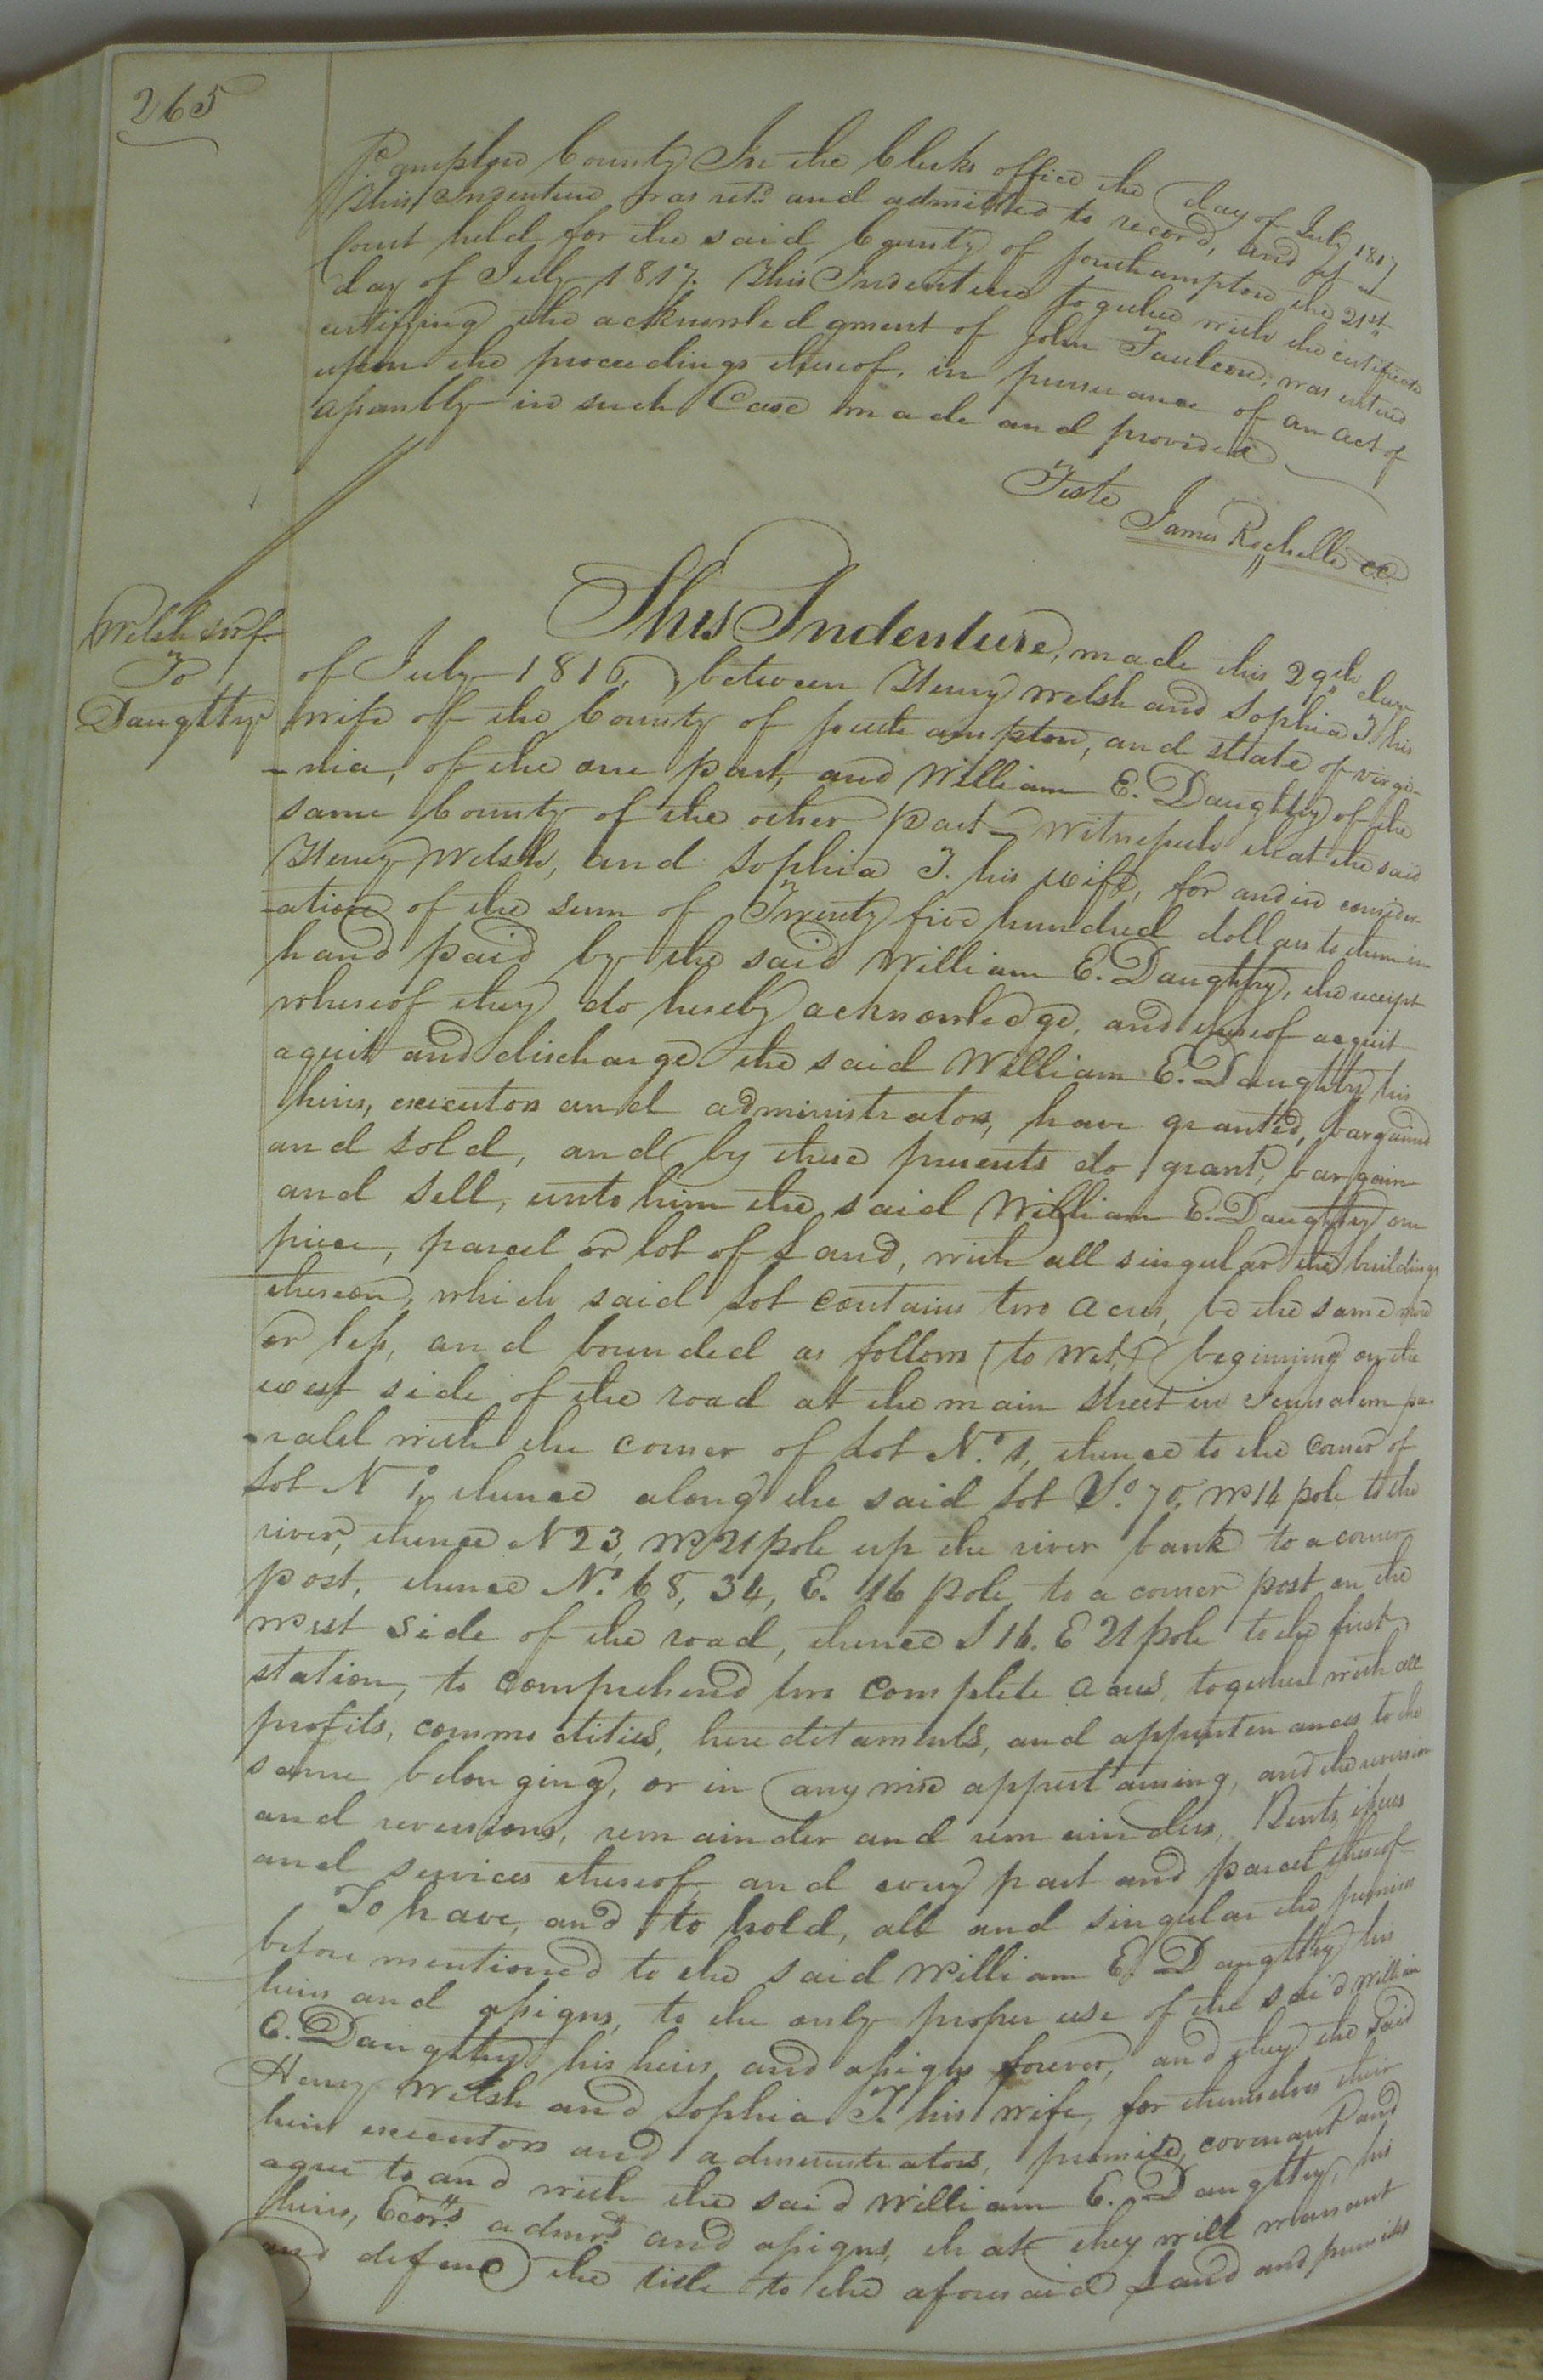 265
So.ampton County In the Clerks office the day of July 1817
This Indenture was retd. and admitted to record, and at a
Court held for the said County of Southampton the 21st
day of July 1817. This Indenture together with the certificate
certifying the acknowledgment of John Faulcon, was entered
upon the proceedings thereof, in pursuance of an act of
assembly in such Case made and provided
Teste
James Rochelle CC.
Welsh &wf.
To
Daughtry
This Indenture, made this 29th day
of July 1816, between Henry Welsh and Sophia T. his
wife of the County of Southampton, and State of Virgi-
-nia, of the one part, and William E. Daughtry of the
same County of the other part Witnesseth that the said
Henry Welsh, and Sophia T. his wife, for and in consider-
-ation of the sum of Twenty five hundred dollars to them in
hand paid by the said William E. Daughtry, the receipt
whereof they do hereby acknowledge, and thereof acquit
aquit and discharge the said William E. Daughtry his
heirs, executors and administrators, have granted, bargained
and sold, and by these presents do grant, bargain
and sell, unto him the said William E. Daughtry one
piece, parcel or lot of Land, with all singular the buildings
thereon, which said Lot contains two acres, be the same more
or less, and bounded as follows (to wit,) beginning on the
west side of the road at the main Street in Jerusalem pa-
-ralel with the corner of Lot No. 1, thence to the corner of
Lot No 1, thence along the said Lot So. 70, W 14 pole to the
river, thence N 23, W 21 pole up the river bank to a corner
post, thence No. 68, 34, E. 16 pole to a corner post on the
west side of the road, thence S 16. E 21 pole to the first
station, to comprehend two complete acres, together with all
profits, commodities, hereditaments, and appurtenances to the
same belonging, or in any wise appertaining, and the reversion
and reversions, remainder and remainders, Rents, issues
and services thereof, and every part and parcel thereof
To have, and to hold, all and singular the premises
before mentioned to the said William E. Daughtry his
heirs and assigns, to the only proper use of the said William
E. Daughtry, his heirs, and assigns forever, and they the said
Henry Welsh and Sophia T. his wife, for themselves their
heirs executors and administrators, promise, covenant and
agree to and with the said William E. Daughtry, his
heirs, Ecors. admrs. and assigns, that they will warrant
and defend the title to the aforesaid Land and premises